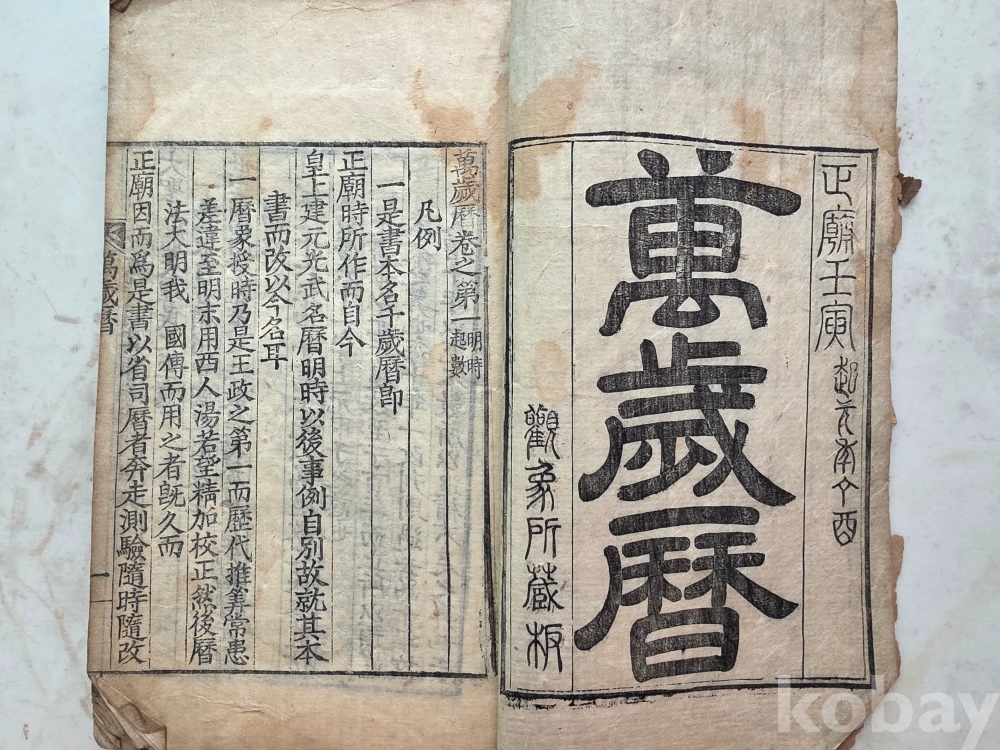 正廟壬寅起元本丁酉
萬歲曆
觀象所藏板
萬歲曆卷之第一 明時 起數
凡例
一是書本名千歲曆卽
正廟時所作而自今
皇上建元光武名曆明時以後事例自別故就其本
書而改以今名耳
一曆象授時乃是王政之第一而歷代推筭常患
差違至明末用西人湯若望精加校正然後曆
法大明我 國傳而用之者旣久而
正廟因而爲是書以省司曆者奔走測驗隨時隨改
萬歲曆
一
kobay